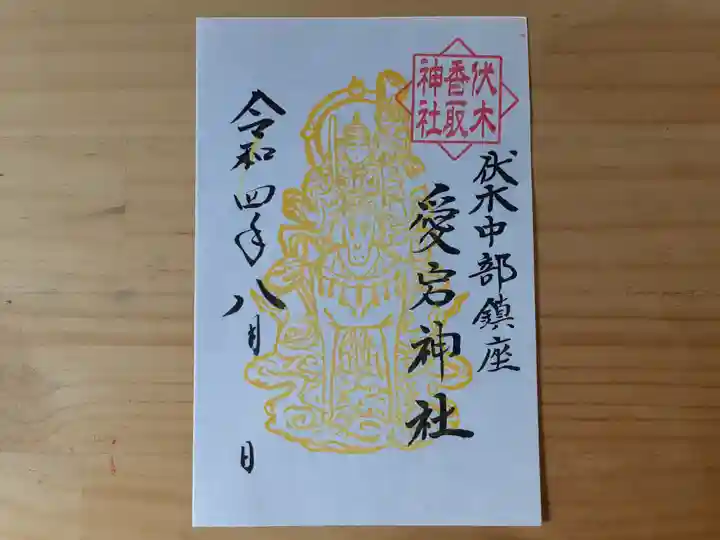 伏木
香取
神社
伏木中部鎮座
愛宕神社
令和四年八月 日